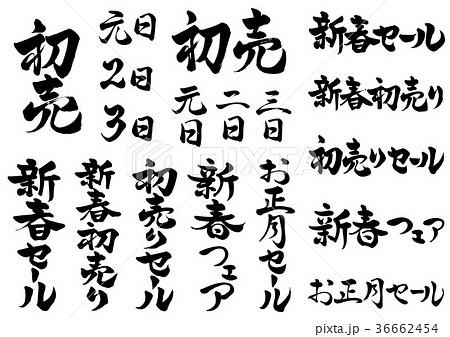 初売
元日
2日
3日
初売
元日
二日
三日
新春セール
新春初売り
初売りセール
新春フェア
お正月セール
新春セール
新春初売り
初売りセール
新春フェア
お正月セール
pixta.jp - 36662454